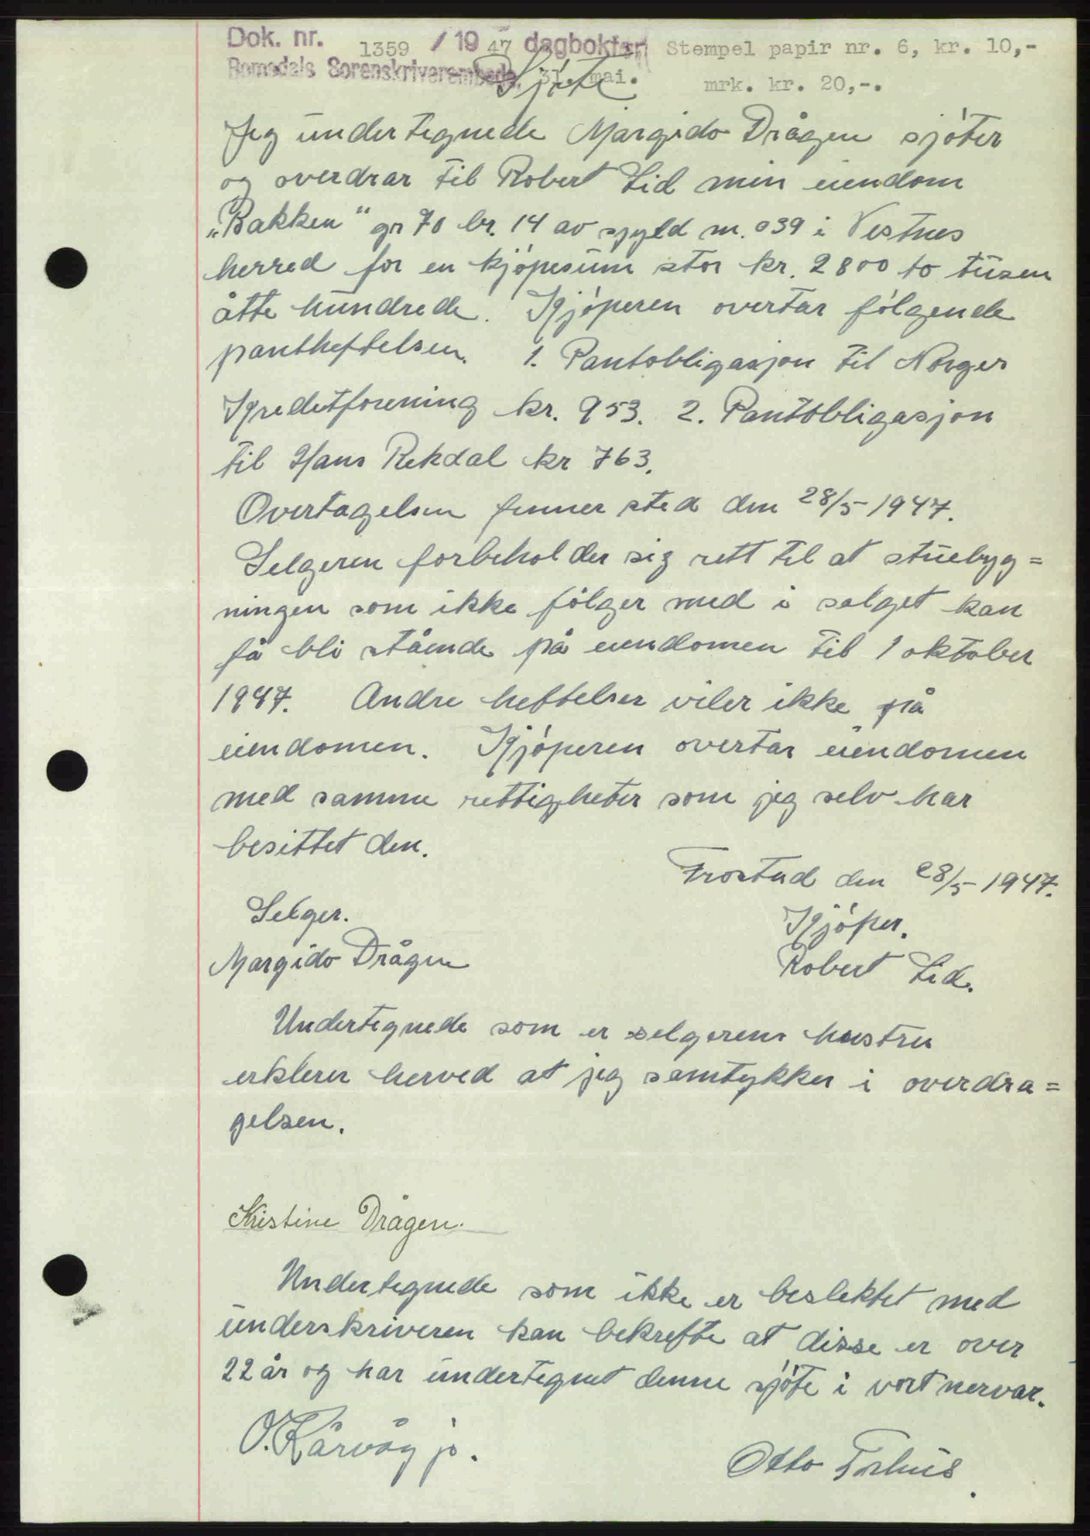 Dok. nr. 1359 / 19 47 dagbokført Stempel papir nr. 6, kr. 10,-
Romsdals Sorenskriverembede. 31. mai. mrk. kr. 20,-.
Sjøte
Jeg undertegnede Margido Drågen sjøter
og overdrar til Robert Lid min eiendom
"Bakken" gr 70 br. 14 av skyld m. 039 i Vestnes
herred for en kjøpesum stor kr. 2800 to tusen
åtte hundrede. Kjøperen overtar følgende
pantheftelsen. 1. Pantobligasjon til Norges
Kreditforening kr. 953. 2. Pantobligasjon
til Hans Rekdal kr 763.
Overtagelsen finner sted den 28/5-1947.
Selgeren forbeholder sig rett til at stuebyg=
ningen som ikke følger med i salget kan
få bli stående på eiendomen til 1 oktober
1947. Andre heftelser viler ikke på
eiendomen. Kjøperen overtar eiendomen
med samme rettigheter som jeg selv har
besittet den.
Frostad den 28/5-1947.
Selger. Kjøper.
Margido Drågen Robert Lid.
Undertegnede som er selgerens hustru
erklerer herved at jeg samtykker i overdra=
gelsen.
Kristine Drågen.
Undertegnede som ikke er beslektet med
underskriveren kan bekrefte at disse er over
22 år og har undertegnet denne sjøte i vort nervær.
O. Kårvåg jr.
Otto